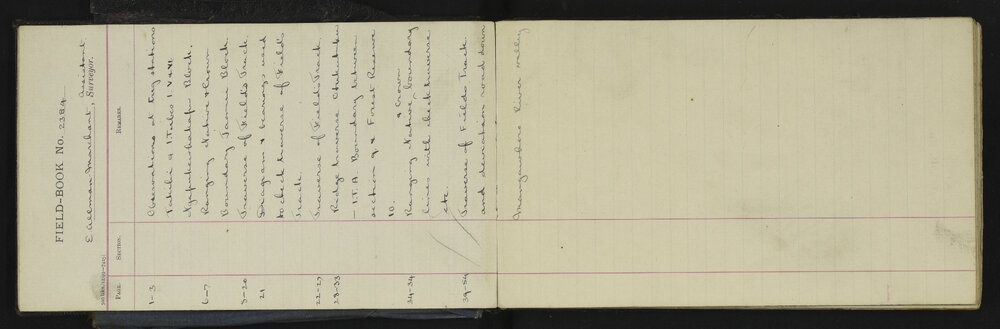 FIELD-BOOK No. 2389
E Allman Marchant, Assistant Surveyor.
PAGE. SECTION. REMARKS.
1-3 Observations at trig stations
I. V & VI.
Block.
6-7 Ranging Native & Crown
Boundary Block
9-20 Traverse of Field's Track
21 Diagram & bearings used
to check traverse of Field's
Track.
22-27 Traverse of Field's Track
28-33 Ridge traverse
— I.T.A. Boundary between
section 9 & Forest Reserve
10.
34-34 Ranging Native & Crown boundary
lines with check traverse
etc
39-54 Traverse of Field's Track
and deviation road down
Mangarohoro River valley